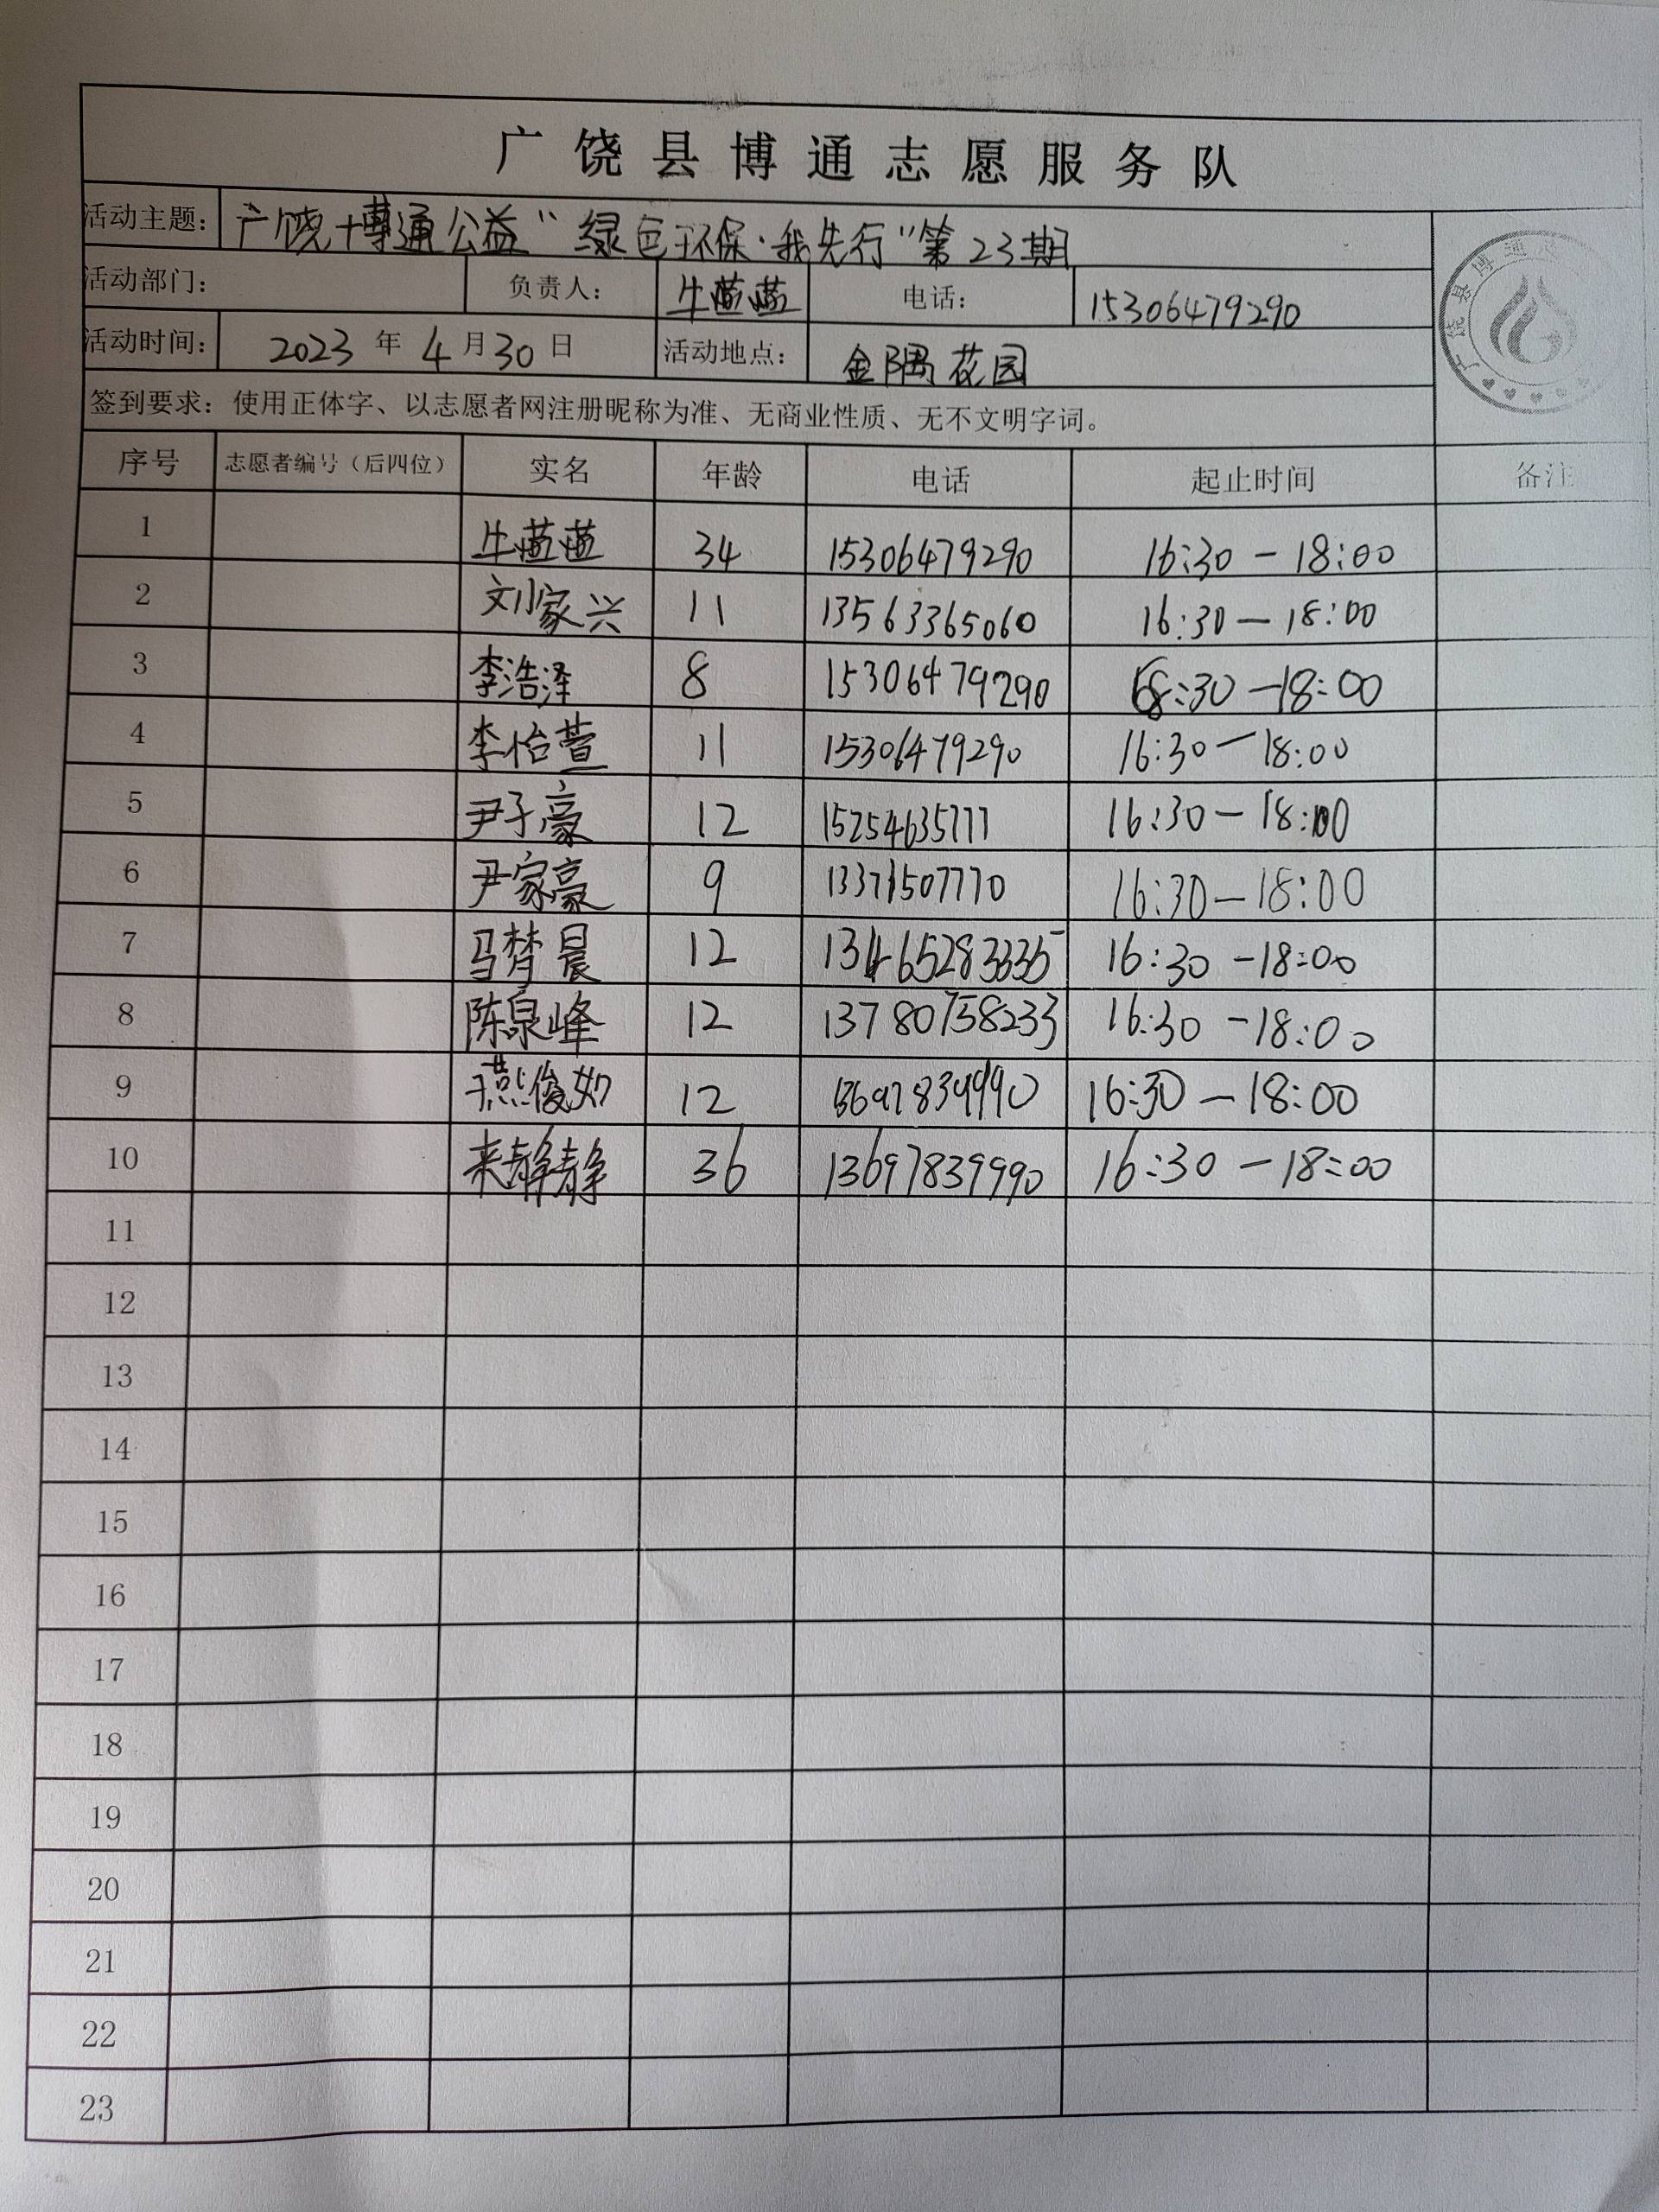 广饶县博通志愿服务队
活动主题： 广饶博通公益“绿色环保·我先行”第23期
活动部门： 负责人： 牛蓝蓝 电话： 15306479290
活动时间： 2023年4月30日 活动地点： 金隅花园
签到要求：使用正体字、以志愿者网注册昵称为准、无商业性质、无不文明字词。
广饶县博通志
序号 志愿者编号（后四位） 实名 年龄 电话 起止时间 备注
1 牛蓝蓝 34 15306479290 16:30-18:00
2 刘家兴 11 13563365060 16:30-18:00
3 李浩泽 8 15306479290 :30-18:00
4 李怡萱 11 15306479290 16:30-18:00
5 尹子豪 12 15254635777 16:30-18:00
6 尹家豪 9 13371507770 16:30-18:00
7 马梦晨 12 16:30-18:00
8 陈泉峰 12 13780758233 16:30-18:00
9 燕俊如 12 16:30-18:00
10 来静静 36 13697839990 16:30-18:00
11
12
13
14
15
16
17
18
19
20
21
22
23